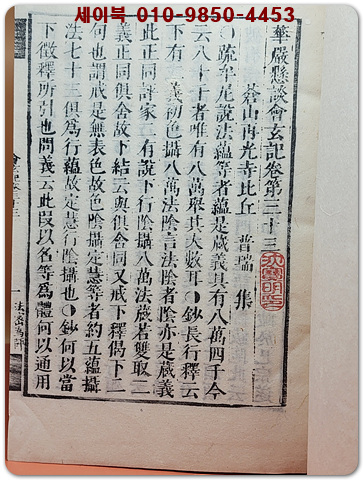 세이북 010-9850-4453
華嚴懸談會玄記卷第三十三
蒼山再光寺比丘 普瑞 集
○疏牟尼說法蘊等者蘊是藏義其有八萬四千今
云八十者唯有八萬舉其大數耳○鈔長行釋云
下有 義初色攝八萬法陰言法陰者陰亦是藏義
此正同評家 有說下行陰攝八萬法藏若雙取二
義正同俱舍故下結云與俱舍同又戒下釋偈下二
何也謂戒是無表色故色陰攝定慧等者約五蘊攝
法七十三俱為行蘊故定慧行陰攝○鈔何以當
下徵釋所引也問義云此段以名等為體何以通用